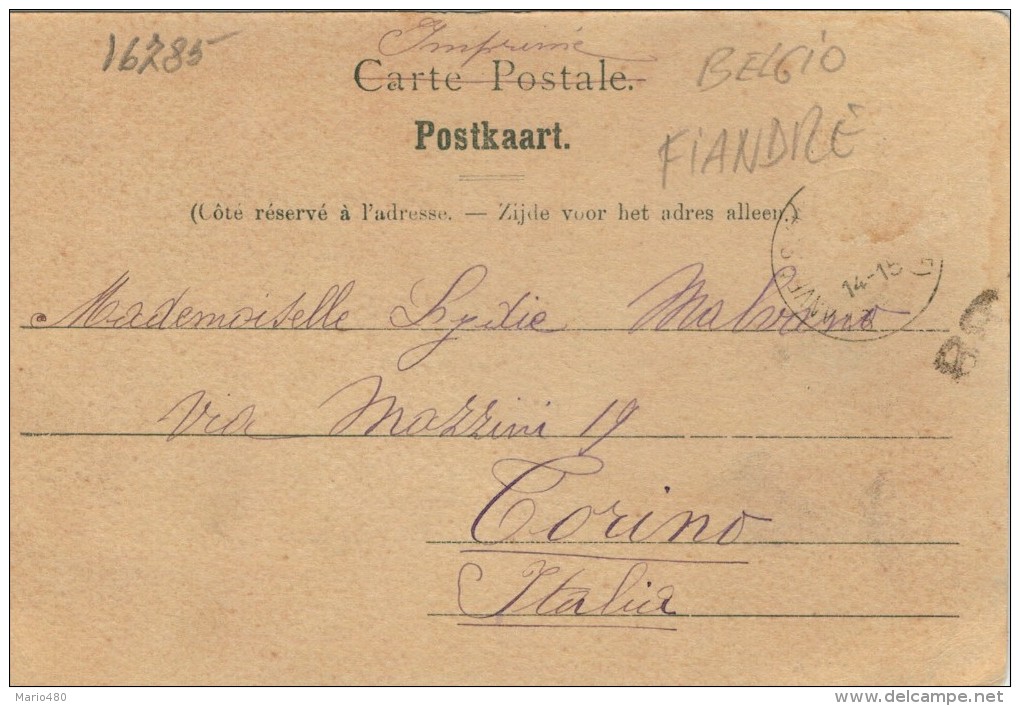 16785
Imprimé
Carte Postale.
BELGIO
Postkaart.
FIANDRE
(Côté réservé à l'adresse. — Zijde voor het adres alleen.)
14-15
Mademoiselle Lydie Malvano
Via Mazzini 19
Torino
Italia
Mario480
www.delcampe.net